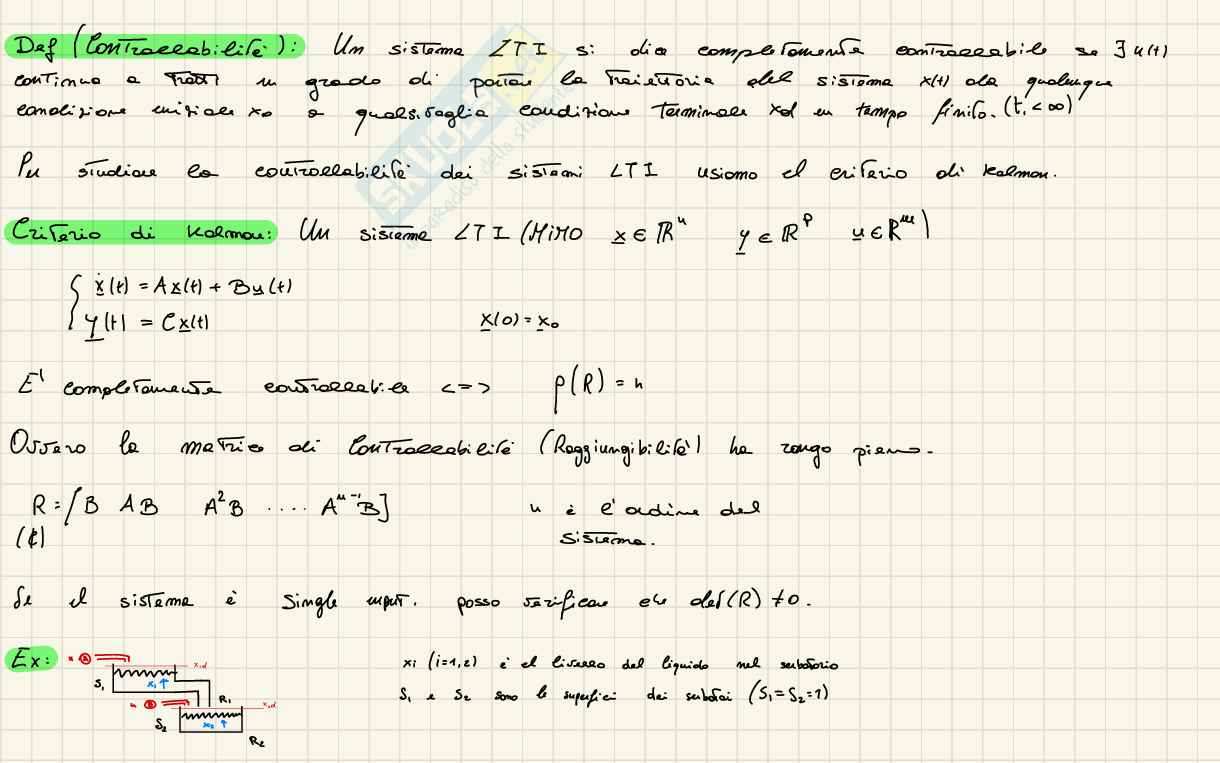 Def (Controllabilità): Un sistema LTI si dice completamente controllabile se ∃ u(t)
continua a tratti in grado di portare la traiettoria del sistema x(t) da qualunque
condizione iniziale x₀ a qualsivoglia condizione terminale xd in tempo finito. (t₁ < ∞)
Per studiare la controllabilità dei sistemi LTI usiamo il criterio di Kalman.
Criterio di Kalman: Un sistema LTI (MIMO x ∈ ℝⁿ y ∈ ℝᵖ u ∈ ℝᵐ)
ẋ(t) = Ax(t) + Bu(t)
y(t) = Cx(t) x(0) = x₀
E' completamente controllabile <=> ρ(R) = n
Ovvero la matrice di Controllabilità (Raggiungibilità) ha rango pieno.
R = [B AB A²B .... Aⁿ⁻¹B] n è l'ordine del
(₵) sistema.
Se il sistema è single input. posso verificare che det(R) ≠ 0.
Ex: xi (i=1,2) è il livello del liquido nel serbatoio
S₁ e S₂ sono le superfici dei serbatoi (S₁=S₂=1)
x₁d
S₁ x₁ ↑ R₁
x₂d
S₂ x₂ ↑ R₂
SKUOLA.net
il paradiso dello studente